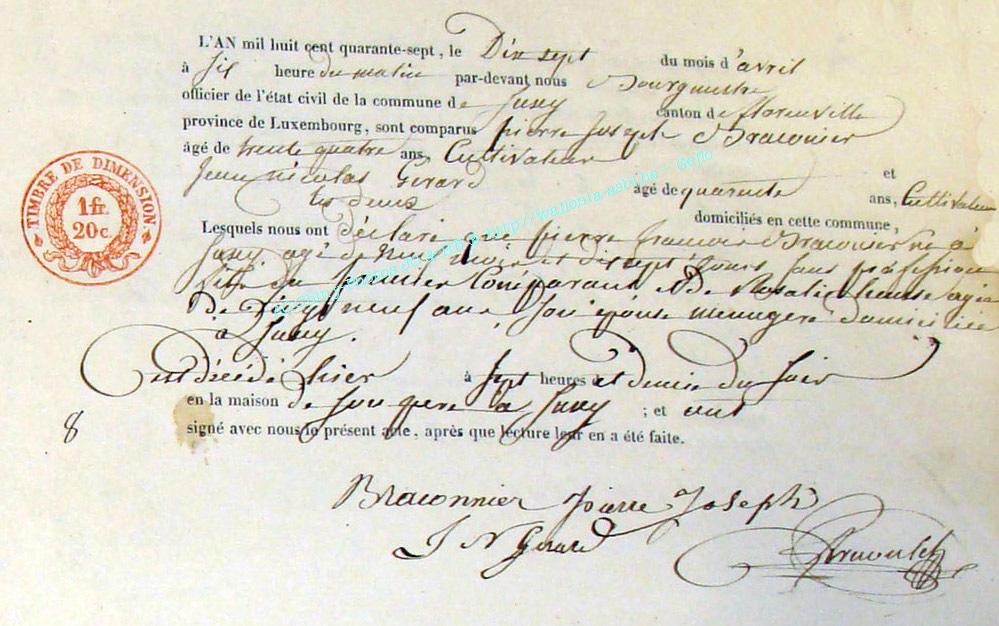 L'AN mil huit cent quarante-sept, le Dix sept du mois d'avril
à six heure du matin par-devant nous Bourgmestre
officier de l'état civil de la commune de Jusey canton de florenville
province de Luxembourg, sont comparus pierre Joseph Braconier
âgé de trente quatre ans, Cultivateur et
Jean nicolas Gerard âgé de quarente ans, Cultivateur
les deux domiciliés en cette commune,
Lesquels nous ont déclaré que pierre francois Braconier né à
Jusey agé de neuf mois et dix sept Jours sans profession
fils du premier Comparant et de Rosalie agée
De Vingt neuf ans, Son épouse menagere domiciliée
à Jusey.
est décédé hier à sept heures et demie du soir
en la maison de son pere à Jusey ; et ont
signé avec nous le présent acte, après que lecture leur en a été faite.
8
TIMBRE DE DIMENSION
1 fr.
20 c.
Braconnier pierre Joseph
J N Gerard